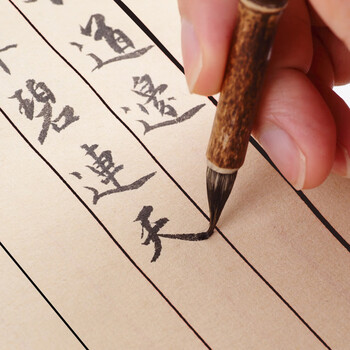 道邊
碧連天